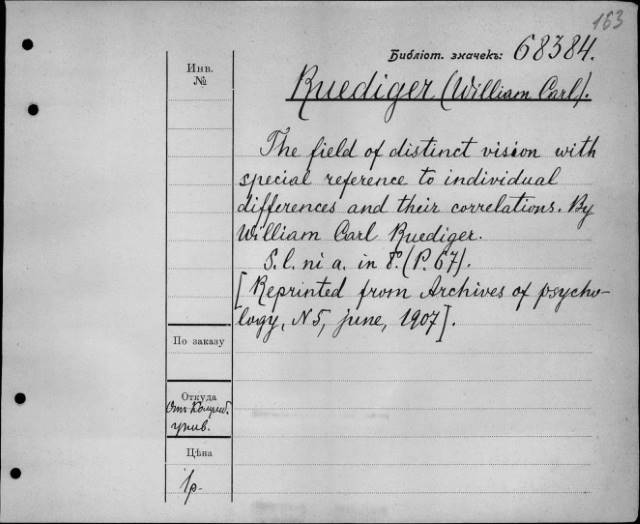 163
Библіот. значекъ: 68384.
Инв.
№
Ruediger (William Carl).
The field of distinct vision with
special reference to individual
differences and their correlations. By
William Carl Ruediger.
S. l. ni a. in 8°. (P. 67).
[Reprinted from Archives of psycho-
logy, N 5, june, 1907].
По заказу
Откуда
Отъ
унив.
Цѣна
1р-